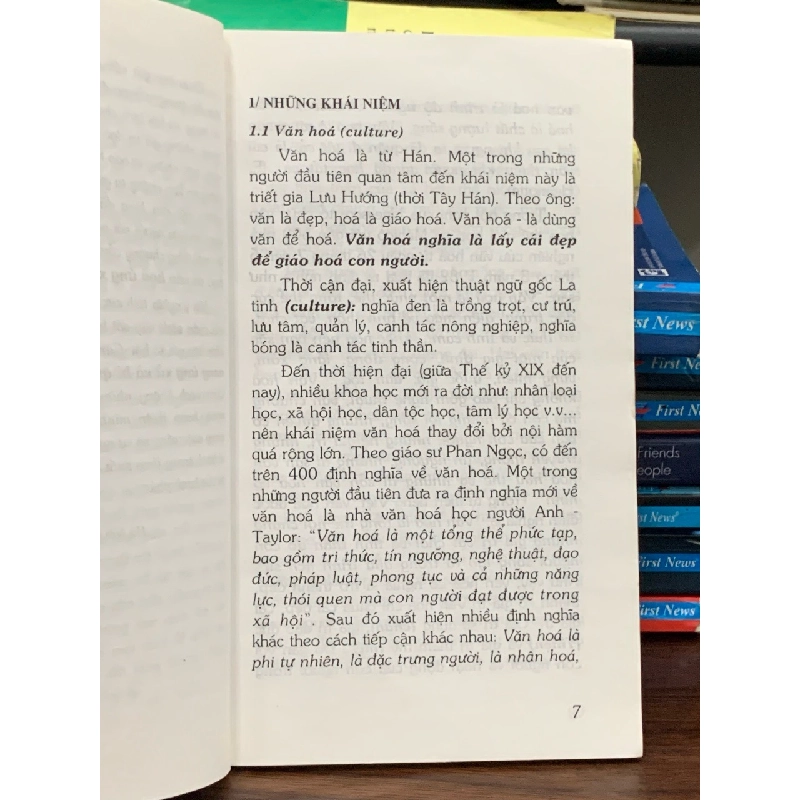 1/ NHỮNG KHÁI NIỆM
1.1 Văn hoá (culture)
Văn hoá là từ Hán. Một trong những
người đầu tiên quan tâm đến khái niệm này là
triết gia Lưu Hướng (thời Tây Hán). Theo ông:
văn là đẹp, hoá là giáo hoá. Văn hoá - là dùng
văn để hoá. Văn hoá nghĩa là lấy cái đẹp
để giáo hoá con người.
Thời cận đại, xuất hiện thuật ngữ gốc La
tinh (culture): nghĩa đen là trồng trọt, cư trú,
lưu tâm, quản lý, canh tác nông nghiệp, nghĩa
bóng là canh tác tinh thần.
Đến thời hiện đại (giữa Thế kỷ XIX đến
nay), nhiều khoa học mới ra đời như: nhân loại
học, xã hội học, dân tộc học, tâm lý học v.v...
nên khái niệm văn hoá thay đổi bởi nội hàm
quá rộng lớn. Theo giáo sư Phan Ngọc, có đến
trên 400 định nghĩa về văn hoá. Một trong
những người đầu tiên đưa ra định nghĩa mới về
văn hoá là nhà văn hoá học người Anh -
Taylor: "Văn hoá là một tổng thể phức tạp,
bao gồm tri thức, tín ngưỡng, nghệ thuật, đạo
đức, pháp luật, phong tục và cả những năng
lực, thói quen mà con người đạt được trong
xã hội". Sau đó xuất hiện nhiều định nghĩa
khác theo cách tiếp cận khác nhau: Văn hoá là
phi tự nhiên, là đặc trưng người, là nhân hoá,
7
rst News
First News
First News
Friends
eople
st News
First News
irst News